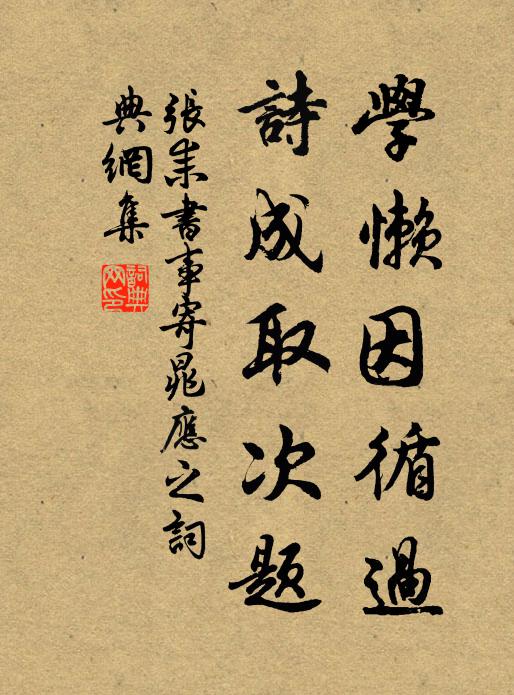 學懶因循過
詩成取次題
張耒書事寄晁應之詞
典網集
詞典網印